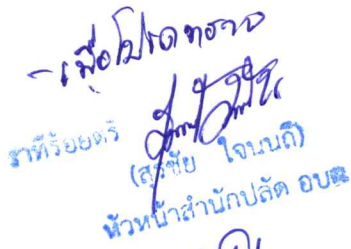 - เพื่อโปรดทราบ
ว่าที่ร้อยตรี
(สุรชัย ใจนนถี)
หัวหน้าสำนักปลัด อบต.